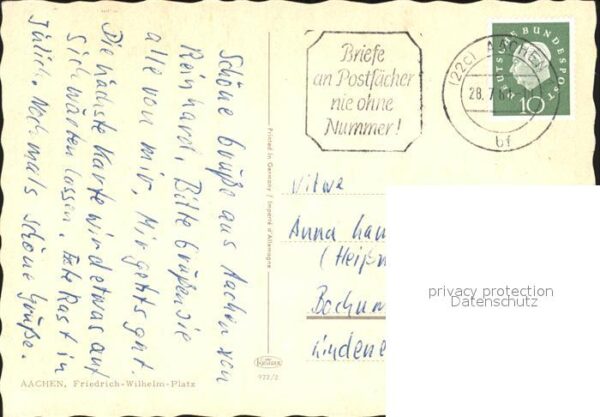 Schöne Grüße aus Aachen von
Reinhard. Bitte grüßen sie
alle von mir. Mir gehts gut.
Die nächste Karte wird etwas auf
sich warten lassen. Rast in
Jülich. Nochmals schöne Grüße.
AACHEN, Friedrich-Wilhelm-Platz
Printed in Germany / Imprimé d'Allemagne
972/2
Briefe
an Postfächer
nie ohne
Nummer!
(22c) AACHEN
28.7.60
bf
DEUTSCHE BUNDESPOST
10
Witwe
Anna
(Heiß
Bochum
privacy protection
Datenschutz